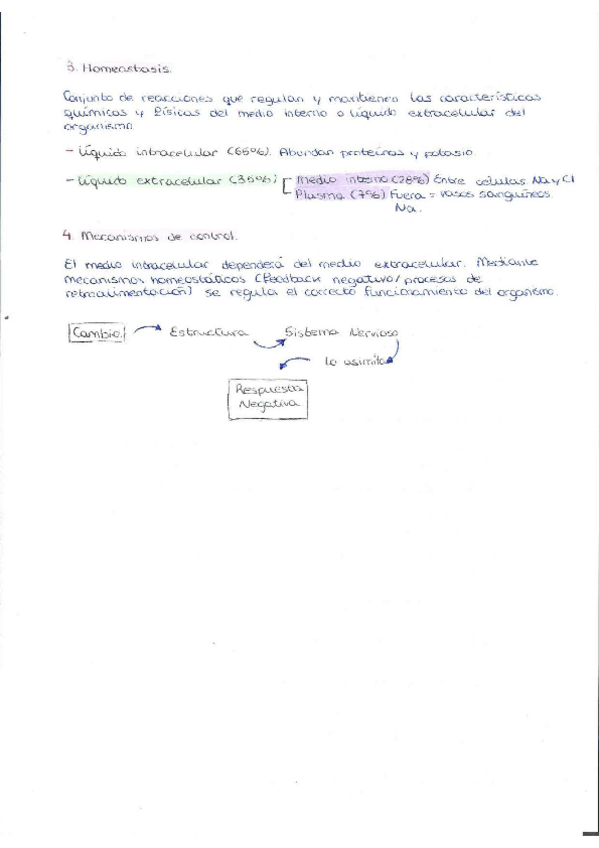 3. Homeastasis.
Conjunto de reacciones que regulan y mantienen las características
químicas y físicas del medio interno o líquido extracelular del
organismo.
- Líquido intracelular (65%). Abundan proteínas y potasio.
- Líquido extracelular (35%) [ Medio interno (28%) Entre células Na y Cl
Plasma (7%) Fuera = vasos sanguíneos.
Na.
4. Mecanismos de control.
El medio intracelular dependerá del medio extracelular. Mediante
mecanismos homeostáticos (Feedback negativo/procesos de
retroalimentación) se regula el correcto funcionamiento del organismo.
Cambio → Estructura → Sistema Nervioso
lo asimila
Respuesta
Negativa